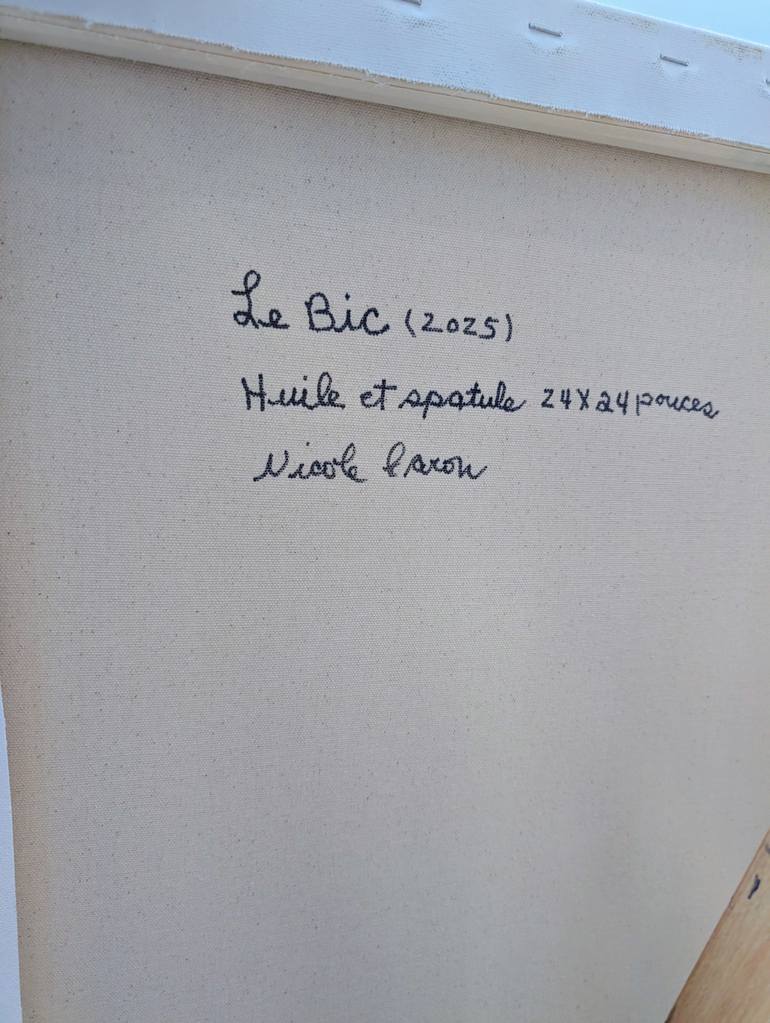 Le Bic (2025)
Huile et spatule 24x24 pouces
Nicole Caron